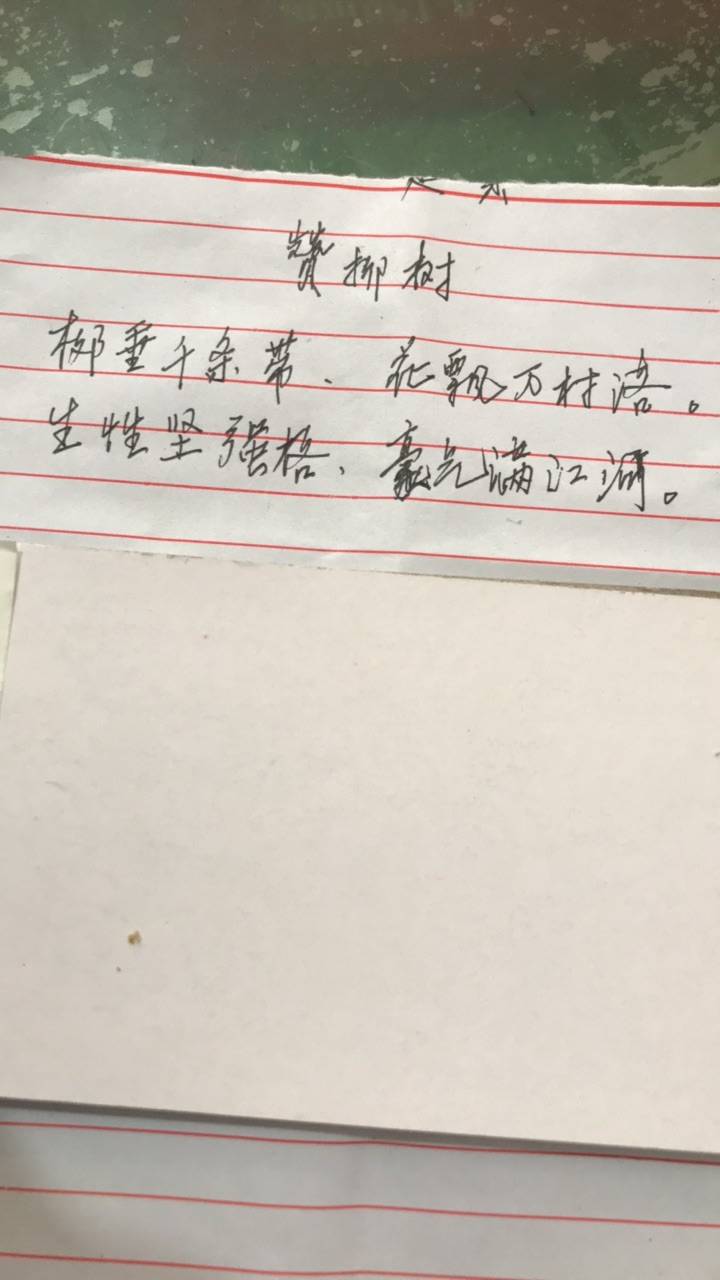 赞柳树
柳垂千条带、花飘万村落。
生性坚强格、豪气满江河。